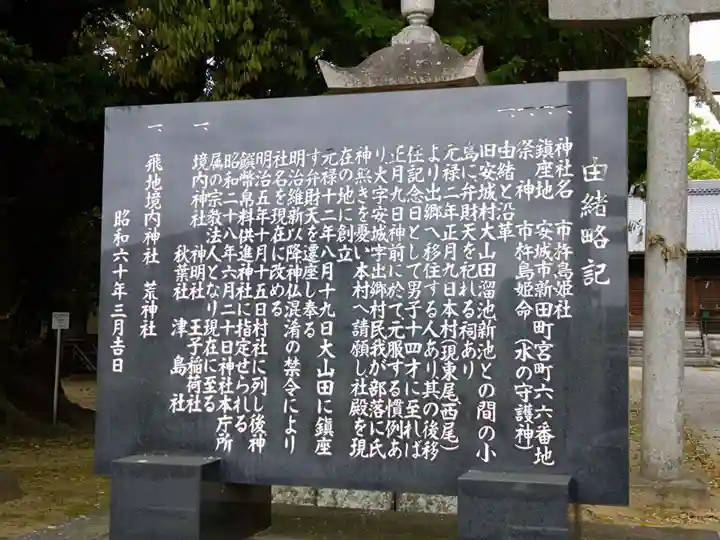 由緒略記
一、神社名 市杵島姫社
一、鎮座地 安城市新田町宮町六六番地
一、祭神 市杵島姫命(水の守護神)
一、由緒と沿革
旧安城村大山田溜池新池との間の小
島に弁財天を祀れる祠あり
元禄二年正月九日本村(現東尾、西尾)
より出郷へ移住する人あり其の後移
住記念日として男子十四才に至れば
正月九日神前に於て元服する慣例あ
り、大字安城字出郷村民我が部落に氏
神無きを憂い本村へ請願し社殿を現
在の地に創立
元禄十二年八月十九日大山田に鎮座
す弁財天を遷座し奉る
明治維新以降神仏混淆の禁令により
社名を現在に改める
明治五年十月十五日村社に列し後神
饌幣帛料供進神社に指定せられる
昭和二十八年六月二十日神社本庁所
属の宗教法人となり現在に至る
一、境内神社 神明社 王子稲荷社
秋葉社 津島社
一、飛地境内神社 荒神社
昭和六十年三月吉日